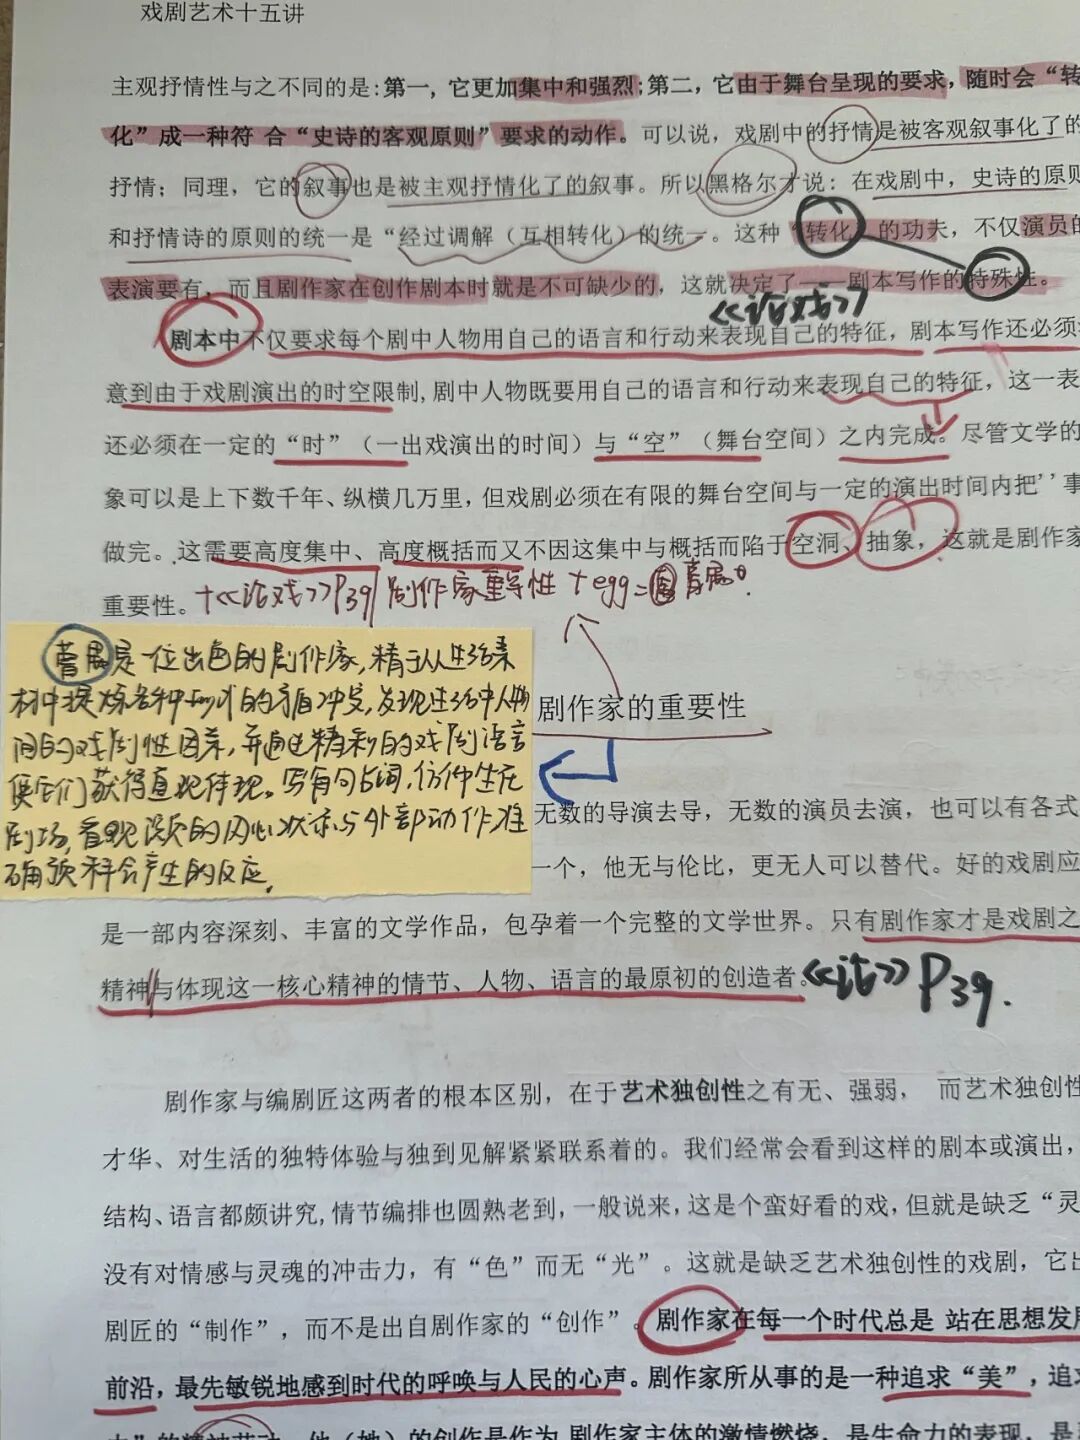 戏剧艺术十五讲
主观抒情性与之不同的是:第一，它更加集中和强烈;第二，它由于舞台呈现的要求，随时会“转
化”成一种符 合“史诗的客观原则”要求的动作。可以说，戏剧中的抒情是被客观叙事化了的
抒情；同理，它的叙事也是被主观抒情化了的叙事。所以黑格尔才说：在戏剧中，史诗的原则
和抒情诗的原则的统一是“经过调解（互相转化）的统一。这种“转化”的功夫，不仅演员的
表演要有，而且剧作家在创作剧本时就是不可缺少的，这就决定了——剧本写作的特殊性。
《话戏》
剧本中不仅要求每个剧中人物用自己的语言和行动来表现自己的特征，剧本写作还必须
意到由于戏剧演出的时空限制,剧中人物既要用自己的语言和行动来表现自己的特征，这一表
还必须在一定的“时”（一出戏演出的时间）与“空”（舞台空间）之内完成。尽管文学的
象可以是上下数千年、纵横几万里，但戏剧必须在有限的舞台空间与一定的演出时间内把''事
做完。这需要高度集中、高度概括而又不因这集中与概括而陷于空洞、抽象，这就是剧作家
重要性。+《话戏》P39 剧作家重要性 + egg=曹禺
曹禺是一位出色的剧作家，精于从生活素
材中提炼各种的矛盾冲突，发现生活中人物
间的戏剧性因素，并通过精彩的戏剧语言
使它们获得直观体现。写每句台词，仿佛坐在
剧场，看观演员的内心状态与外部动作准
确预料会产生的反应.
剧作家的重要性
无数的导演去导，无数的演员去演，也可以有各式
一个，他无与伦比，更无人可以替代。好的戏剧应
是一部内容深刻、丰富的文学作品，包孕着一个完整的文学世界。只有剧作家才是戏剧之
精神与体现这一核心精神的情节、人物、语言的最原初的创造者。《话》P39.
剧作家与编剧匠这两者的根本区别，在于艺术独创性之有无、强弱， 而艺术独创性
才华、对生活的独特体验与独到见解紧紧联系着的。我们经常会看到这样的剧本或演出，
结构、语言都颇讲究,情节编排也圆熟老到，一般说来，这是个蛮好看的戏，但就是缺乏“灵
没有对情感与灵魂的冲击力，有“色”而无“光”。这就是缺乏艺术独创性的戏剧，它出
剧匠的“制作”，而不是出自剧作家的“创作”。剧作家在每一个时代总是 站在思想发展
前沿，最先敏锐地感到时代的呼唤与人民的心声。剧作家所从事的是一种追求“美”，追求
的精神劳动。他（她）的创作是作为 剧作家主体的激情燃烧，是生命力的表现，是